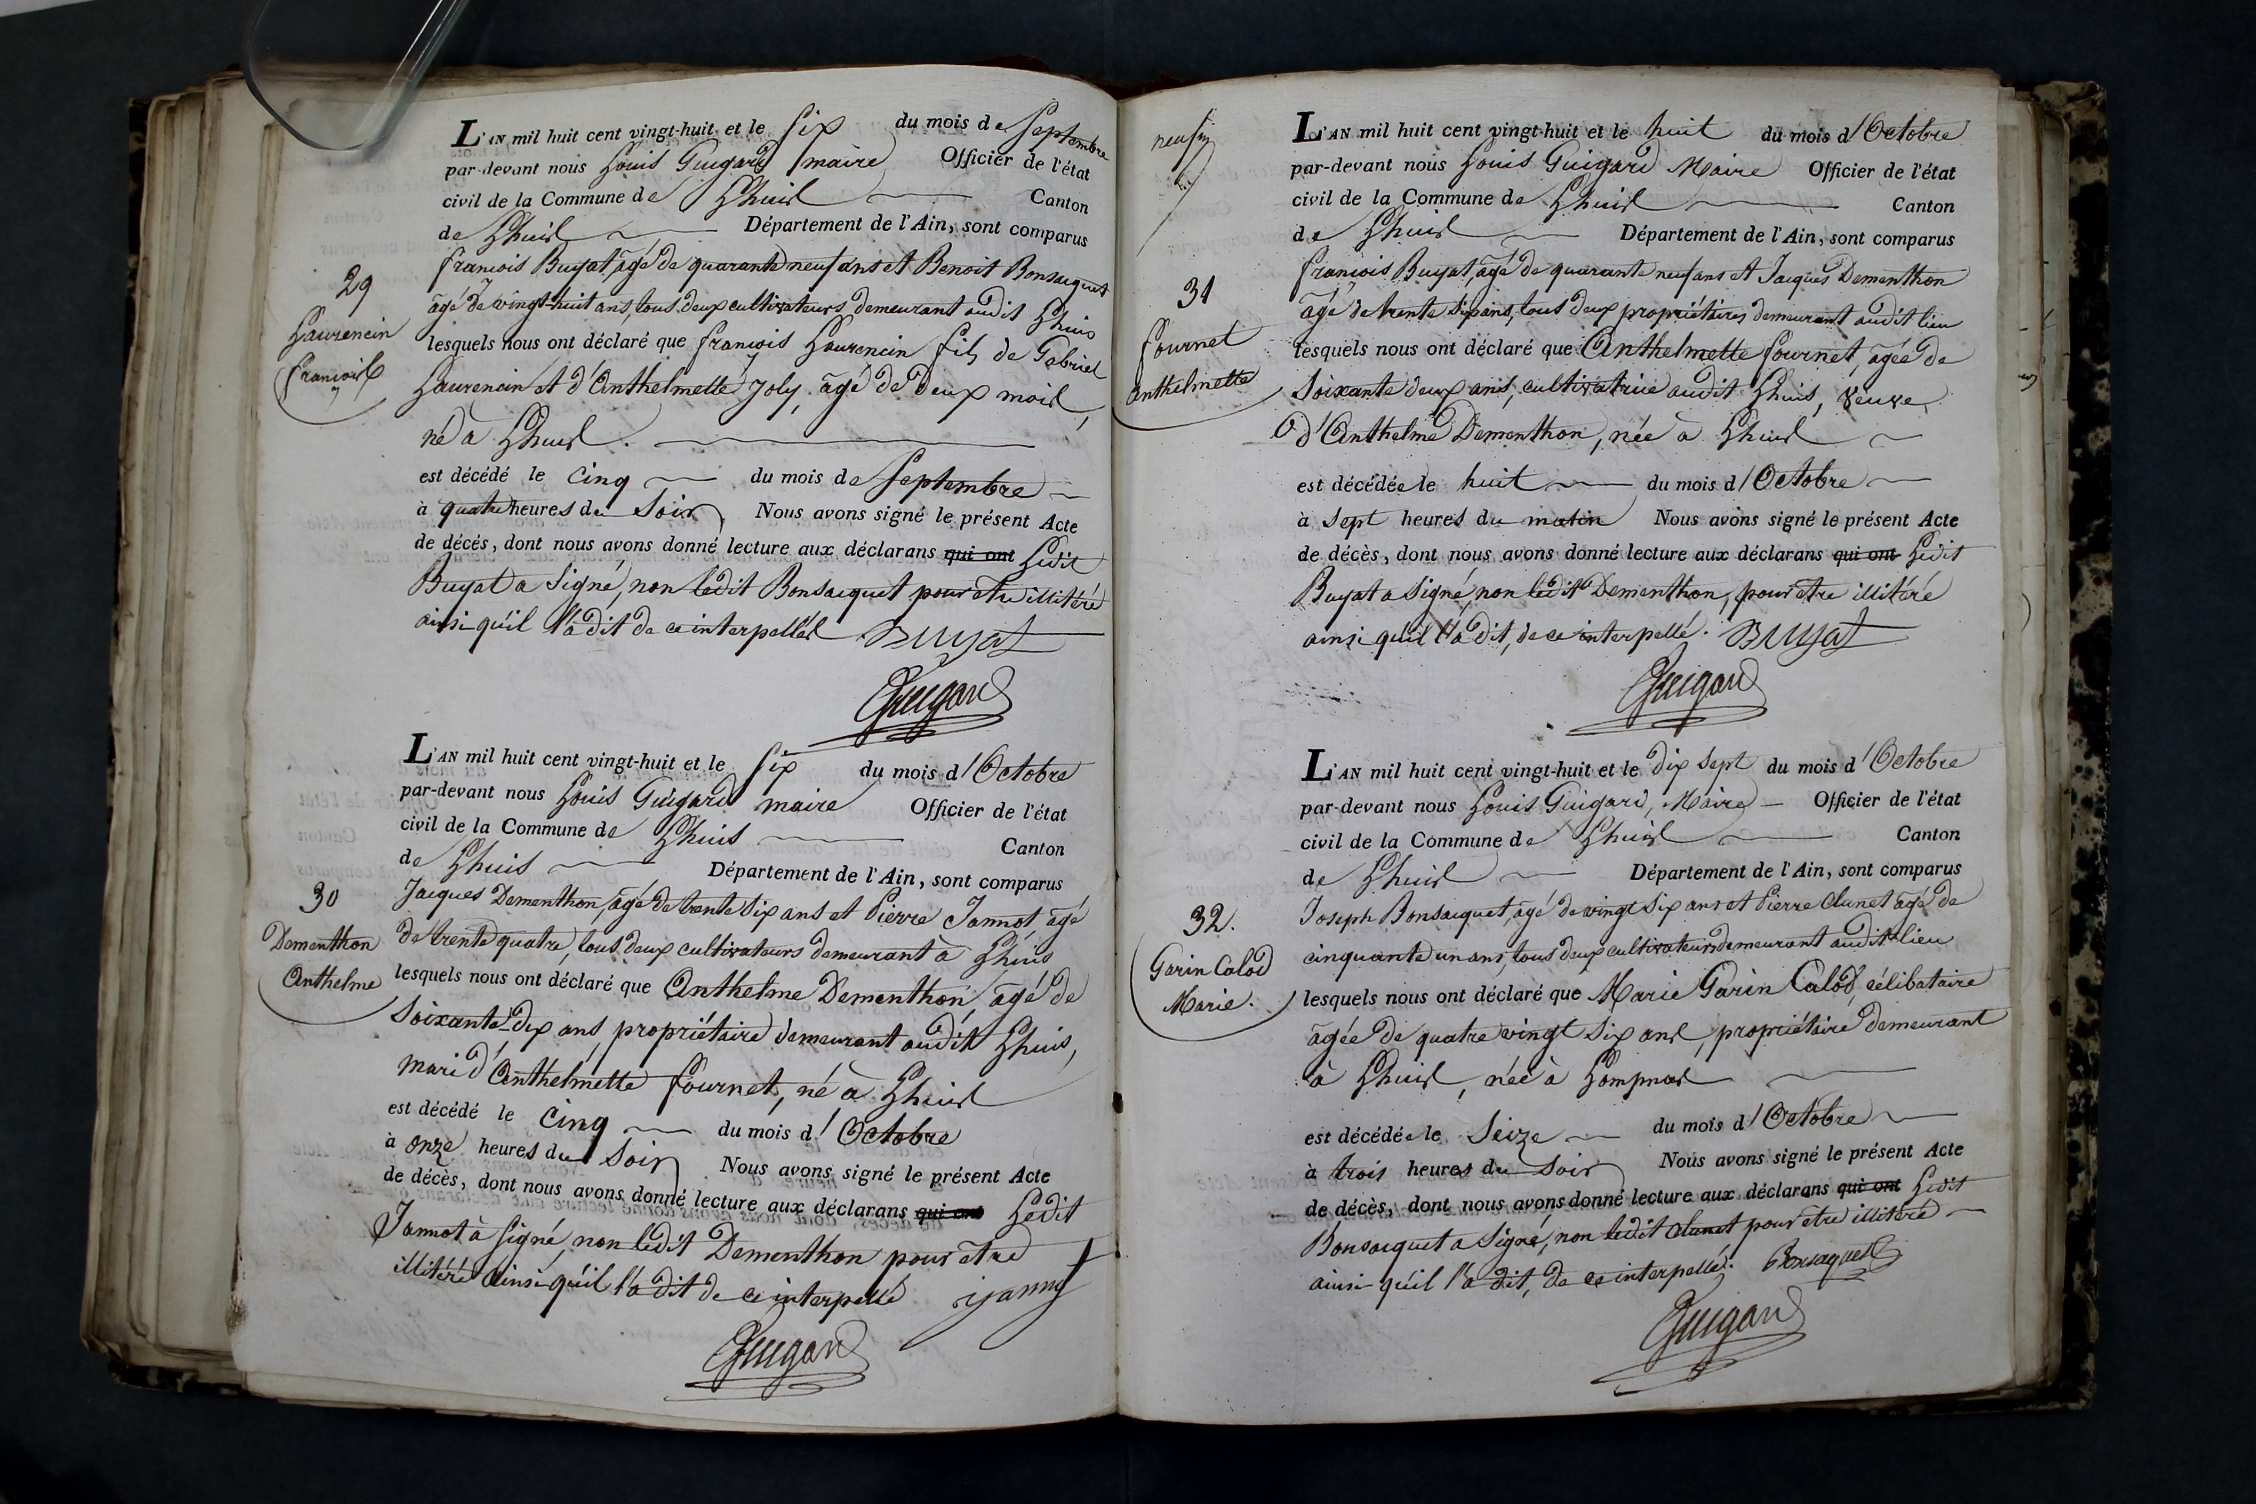 L'AN mil huit cent vingt-huit et le six du mois de Septembre
par-devant nous Louis Guigard maire Officier de l'état
civil de la Commune de Lhuis Canton
de Lhuis Département de l'Ain, sont comparus
françois Buyat, âgé de quarante neuf ans et Benoit Bonsacquet
âgé de vingt-huit ans, tous deux cultivateurs demeurant audit Lhuis
lesquels nous ont déclaré que françois Laurencin fils de Gabriel
Laurencin et d'Anthelmette Joly, âgé de deux mois,
né à Lhuis.
est décédé le cinq du mois de Septembre
à quatre heures du soir, Nous avons signé le présent Acte
de décés, dont nous avons donné lecture aux déclarans qui ont Ledit
Buyat a signé, non ledit Bonsacquet pour être illitéré
ainsi qu'il l'a dit de ce interpellés Buyat
Guigard
29
Laurencin
françois
L'AN mil huit cent vingt-huit et le six du mois d'Octobre
par-devant nous Louis Guigard maire Officier de l'état
civil de la Commune de Lhuis Canton
de Lhuis Département de l'Ain, sont comparus
Jacques Dementhon, âgé de trente six ans et Pierre Jannot, âgé
de trente quatre, tous deux cultivateurs demeurant à Lhuis
lesquels nous ont déclaré que Anthelme Dementhon, âgé de
soixante-dix ans, propriétaire demeurant audit Lhuis,
mari d'Anthelmette fournet, né à Lhuis
est décédé le cinq du mois d'Octobre
à onze heures du soir Nous avons signé le présent Acte
de décès, dont nous avons donné lecture aux déclarans qui ont Ledit
Jannot à signé, non ledit Dementhon pour être
illitéré ainsi qu'il l'a dit de ce interpellé
Guigard
30
Dementhon
Anthelme
L'AN mil huit cent vingt-huit et le huit du mois d'Octobre
par-devant nous Louis Guigard Maire Officier de l'état
civil de la Commune de Lhuis Canton
de Lhuis Département de l'Ain, sont comparus
françois Buyat, âgé de quarante neuf ans et Jacques Dementhon
âgé de trente six ans, tous deux propriétaires demeurant audit lieu
lesquels nous ont déclaré que Anthelmette fournet, âgée de
soixante deux ans, cultivatrice audit Lhuis, veuve
d'Anthelme Dementhon, née à Lhuis
est décédée le huit du mois d'Octobre
à sept heures du matin Nous avons signé le présent Acte
de décès, dont nous avons donné lecture aux déclarans qui ont Ledit
Buyat a signé, non ledit Dementhon, pour être illitéré
ainsi qu'il l'a dit, de ce interpellé. Buyat
Guigard
31
fournet
Anthelmette
L'AN mil huit cent vingt-huit et le dix sept du mois d'Octobre
par-devant nous Louis Guigard, Maire Officier de l'état
civil de la Commune de Lhuis Canton
de Lhuis Département de l'Ain, sont comparus
Joseph Bonsacquet, âgé de vingt six ans et Pierre Clunet âgé de
cinquante un ans, tous deux cultivateurs demeurant audit lieu
lesquels nous ont déclaré que Marie Garin Calod, célibataire
âgée de quatre vingt six ans, propriétaire demeurant
à Lhuis, née à Lompnas
est décédée le seize du mois d'Octobre
à trois heures du soir Nous avons signé le présent Acte
de décès, dont nous avons donné lecture aux déclarans qui ont Ledit
Bonsacquet a signé, non ledit Clunet pour être illitéré
ainsi qu'il l'a dit, de ce interpellé. Bonsaquet
Guigard
32.
Garin Calod
Marie.